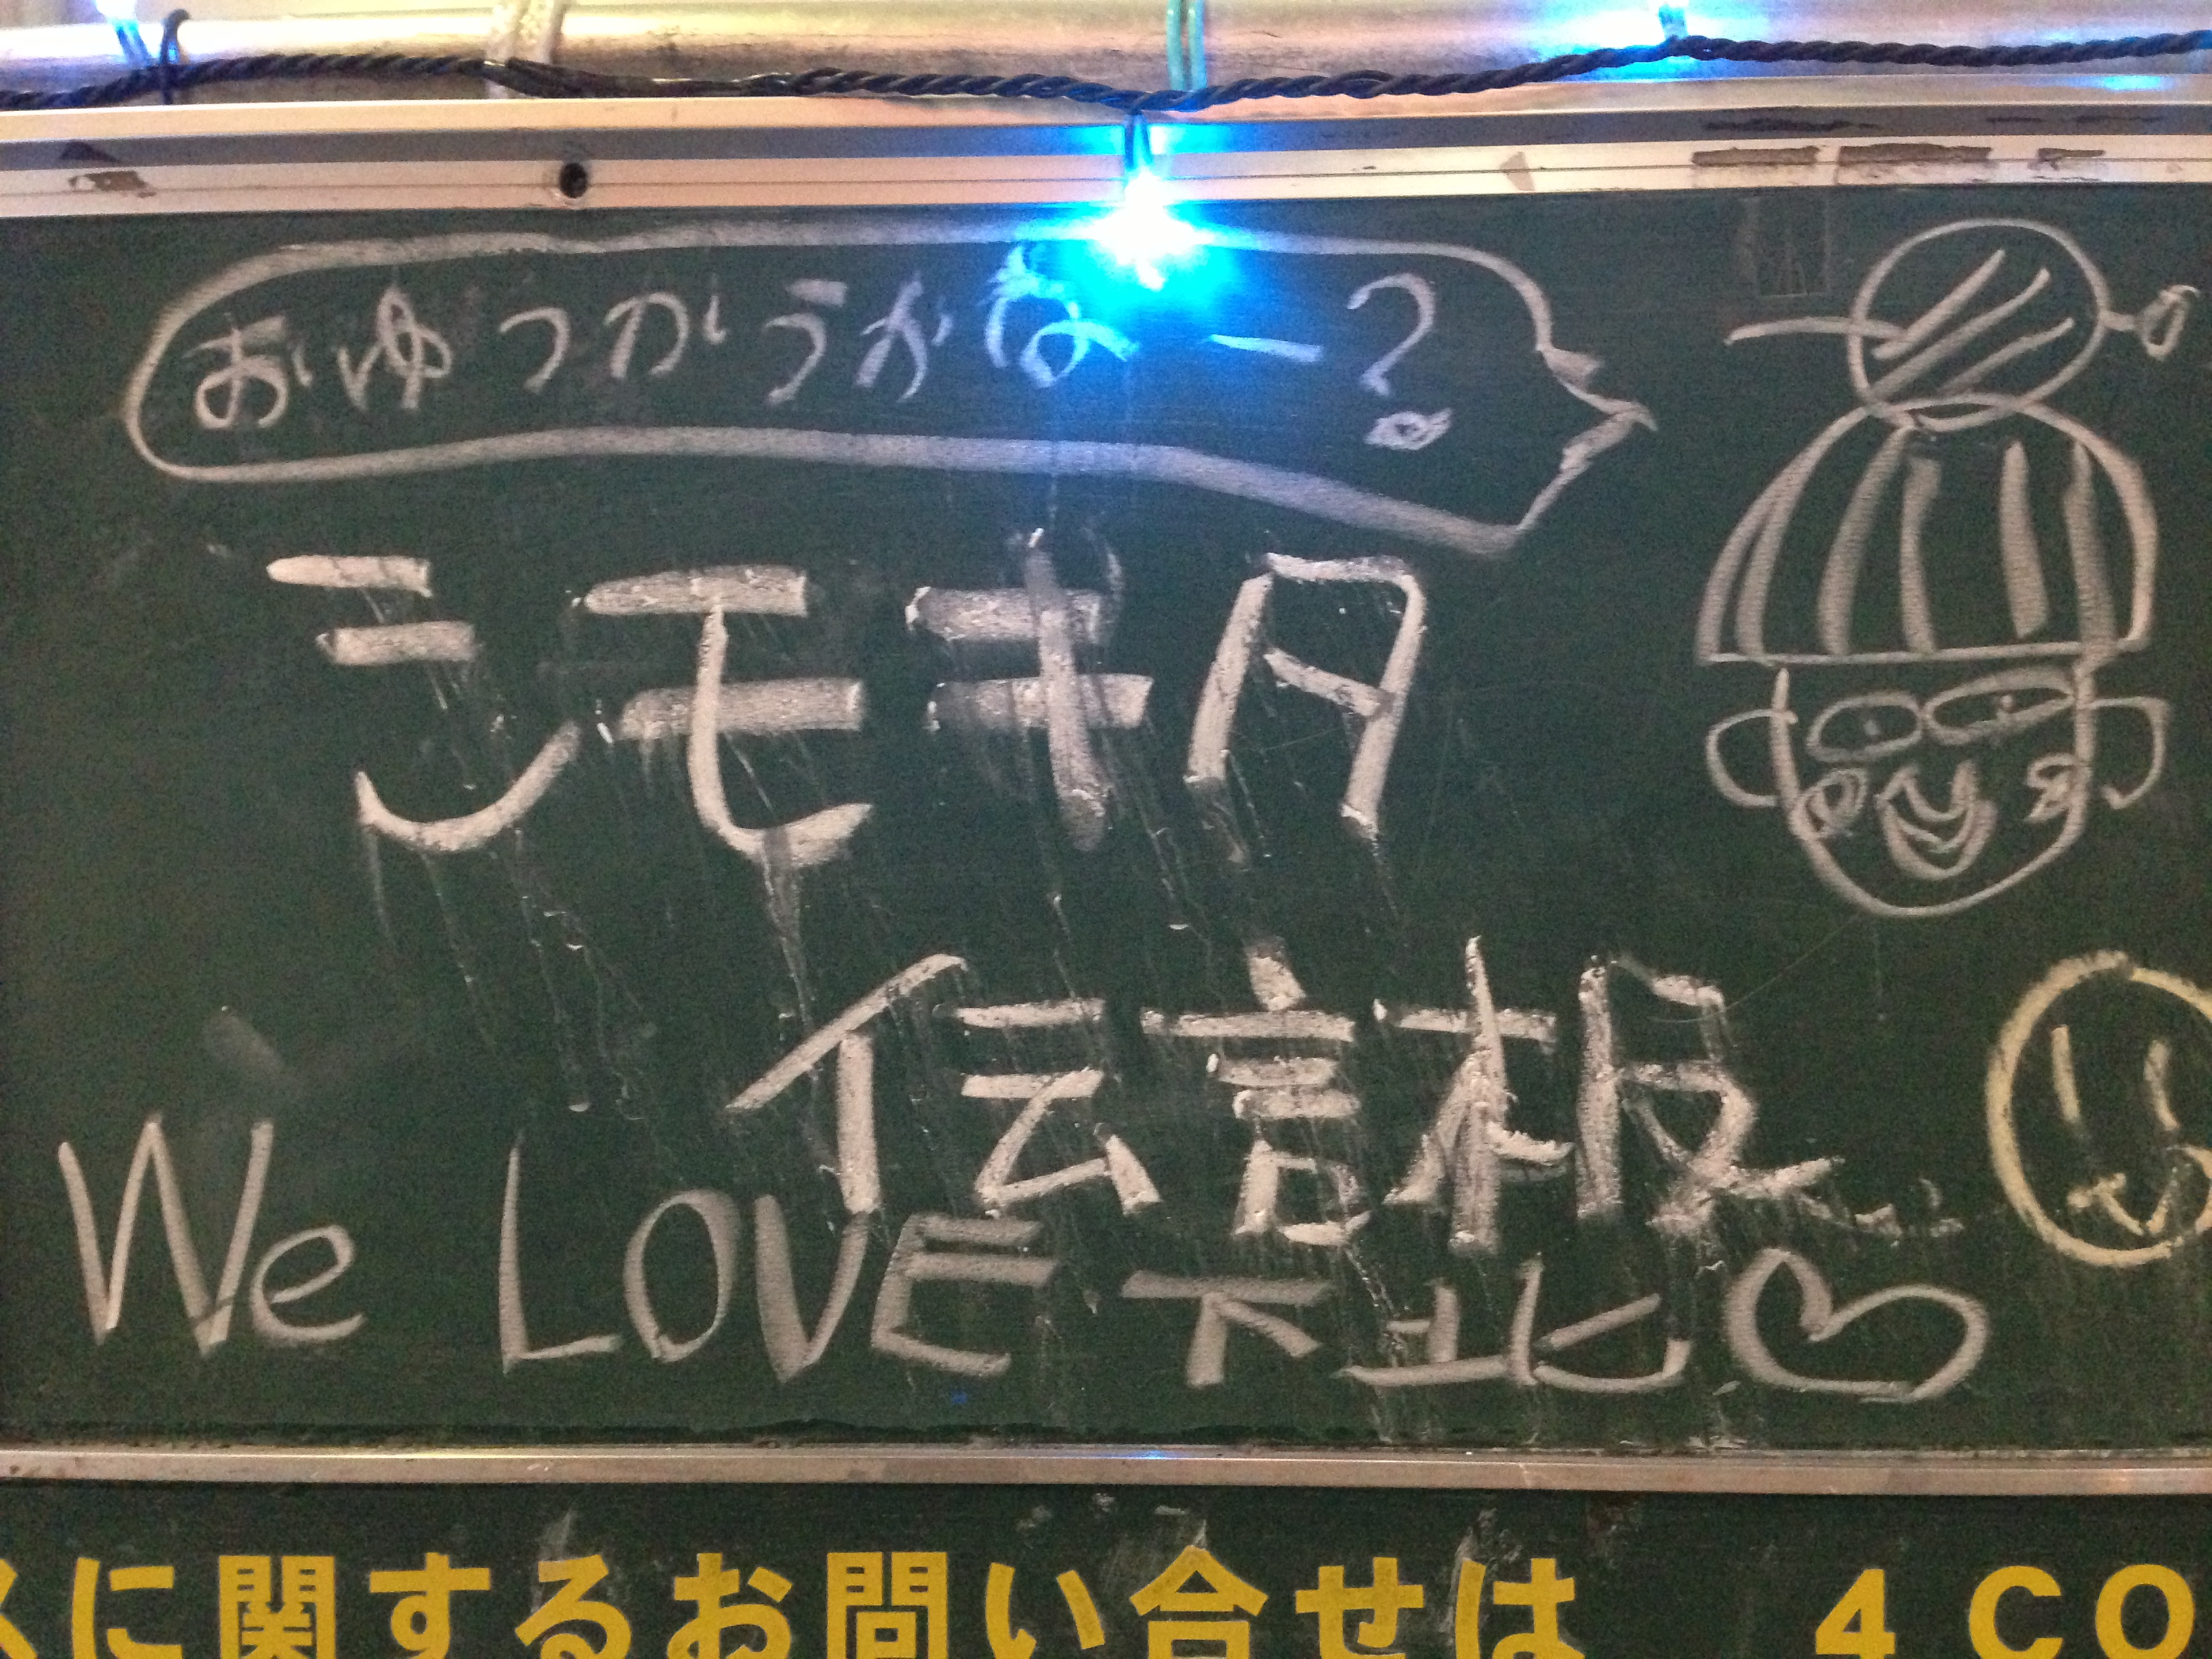 おゆつかうかなー?
シモキタ
伝言板
We LOVE 下北
スに関するお問い合せは 4 CO